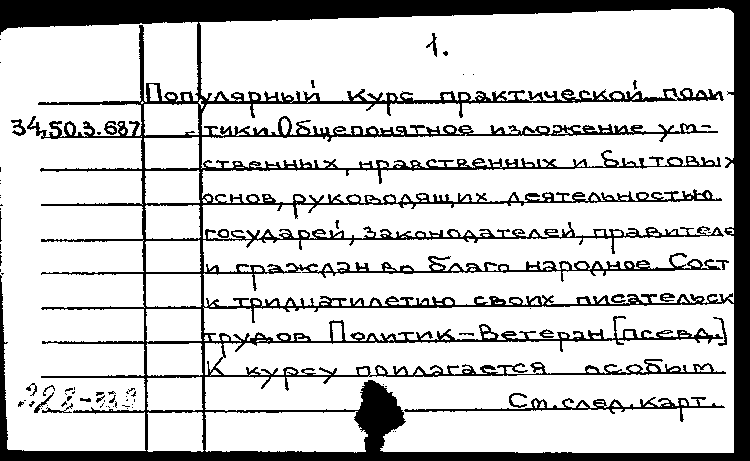 1.
Популярный курс практической поли-
34.50.3.687 тики. Общепонятное изложение ум-
ственных, нравственных и бытовых
основ, руководящих деятельностью
государей, законодателей, правителе
и граждан во благо народное. Сост
к тридцатилетию своих писательск
трудов Политик-Ветеран [псевд.]
К курсу прилагается особым
См. след. карт.